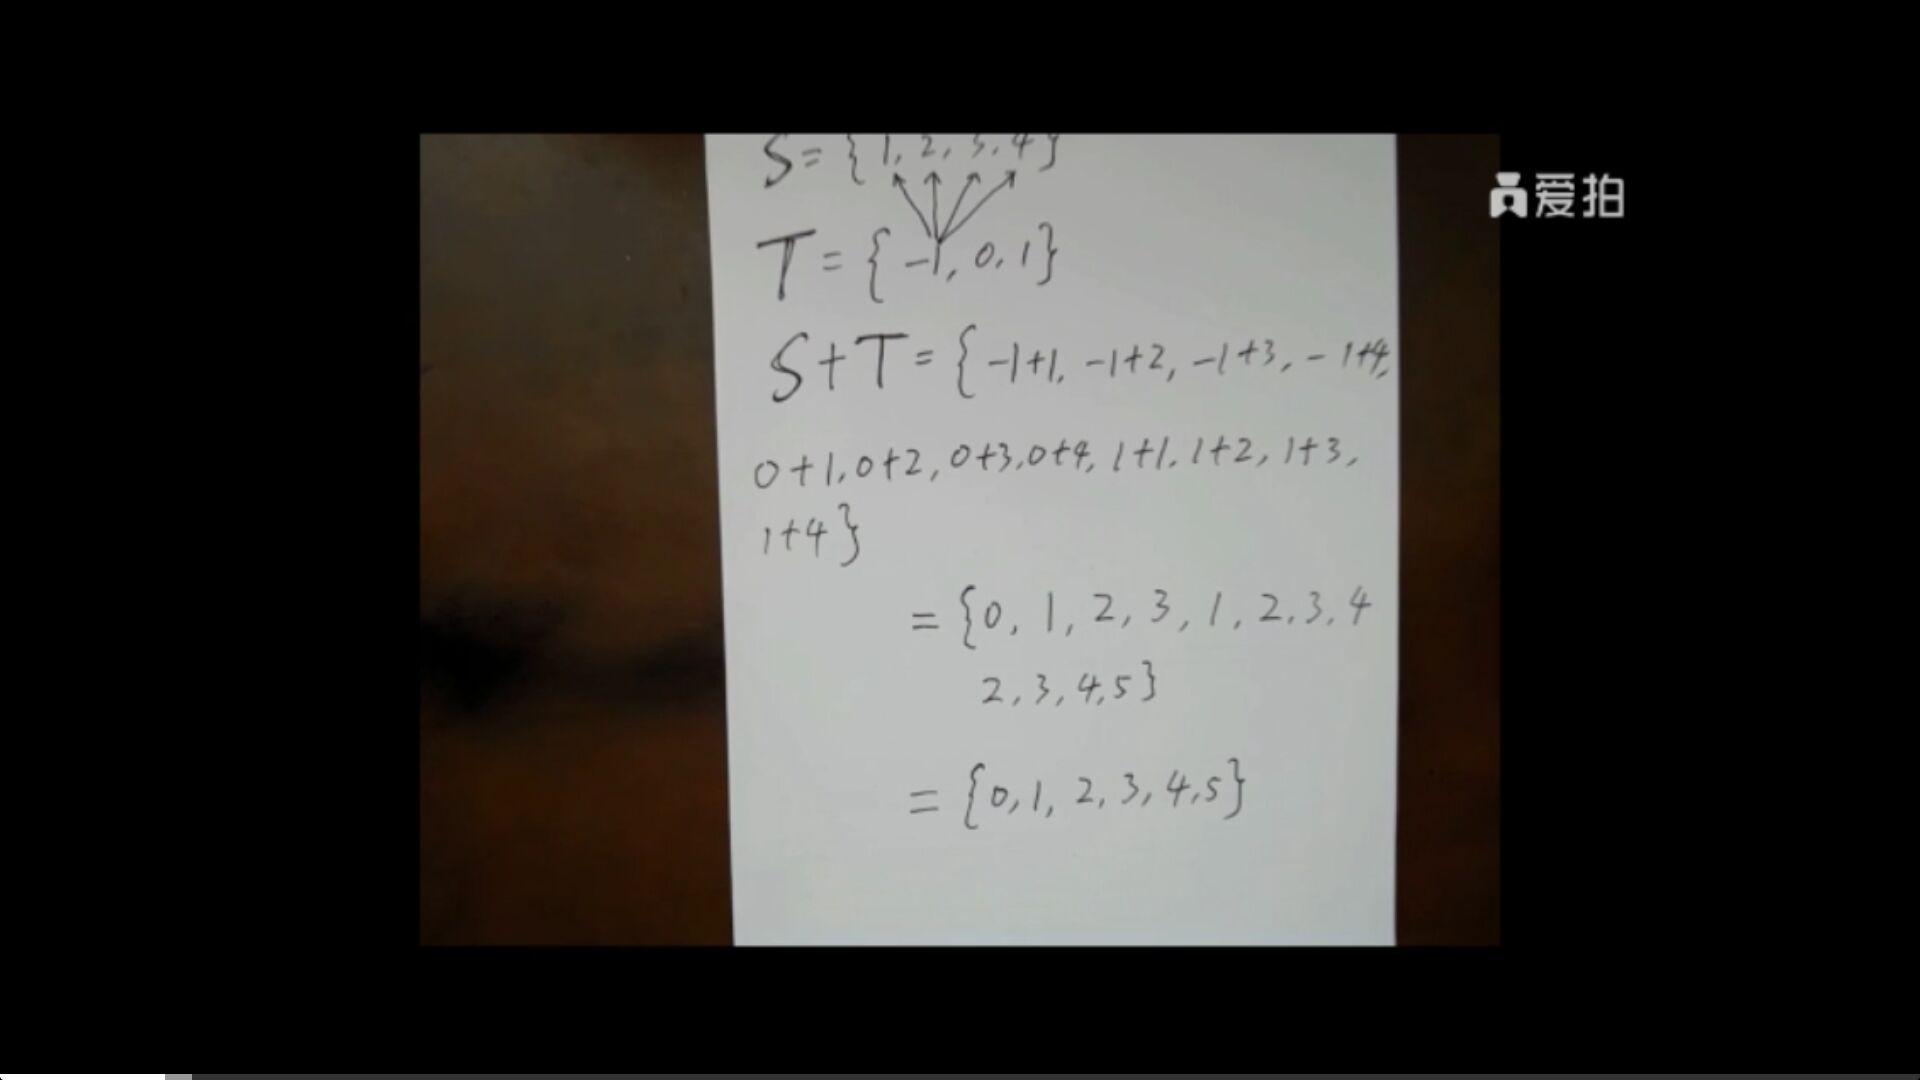 S = {1, 2, 3, 4}
爱拍
T = {-1, 0, 1}
S+T = {-1+1, -1+2, -1+3, -1+4,
0+1, 0+2, 0+3, 0+4, 1+1, 1+2, 1+3,
1+4}
= {0, 1, 2, 3, 1, 2, 3, 4
2, 3, 4, 5}
= {0, 1, 2, 3, 4, 5}